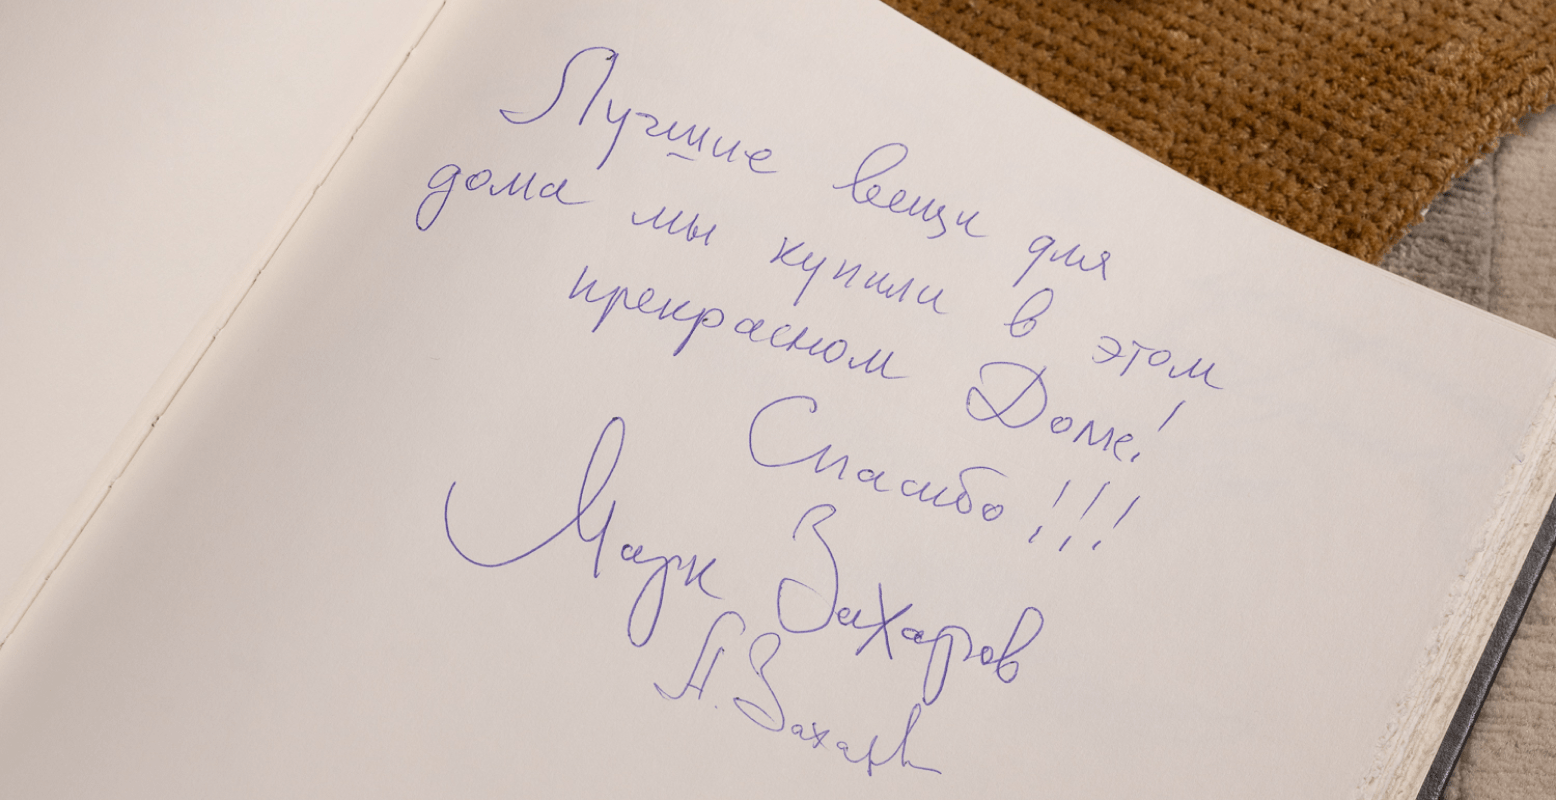 Лучшие вещи для
дома мы купили в этом
прекрасном Доме!
Спасибо!!!
Марк Захаров
А. Захар